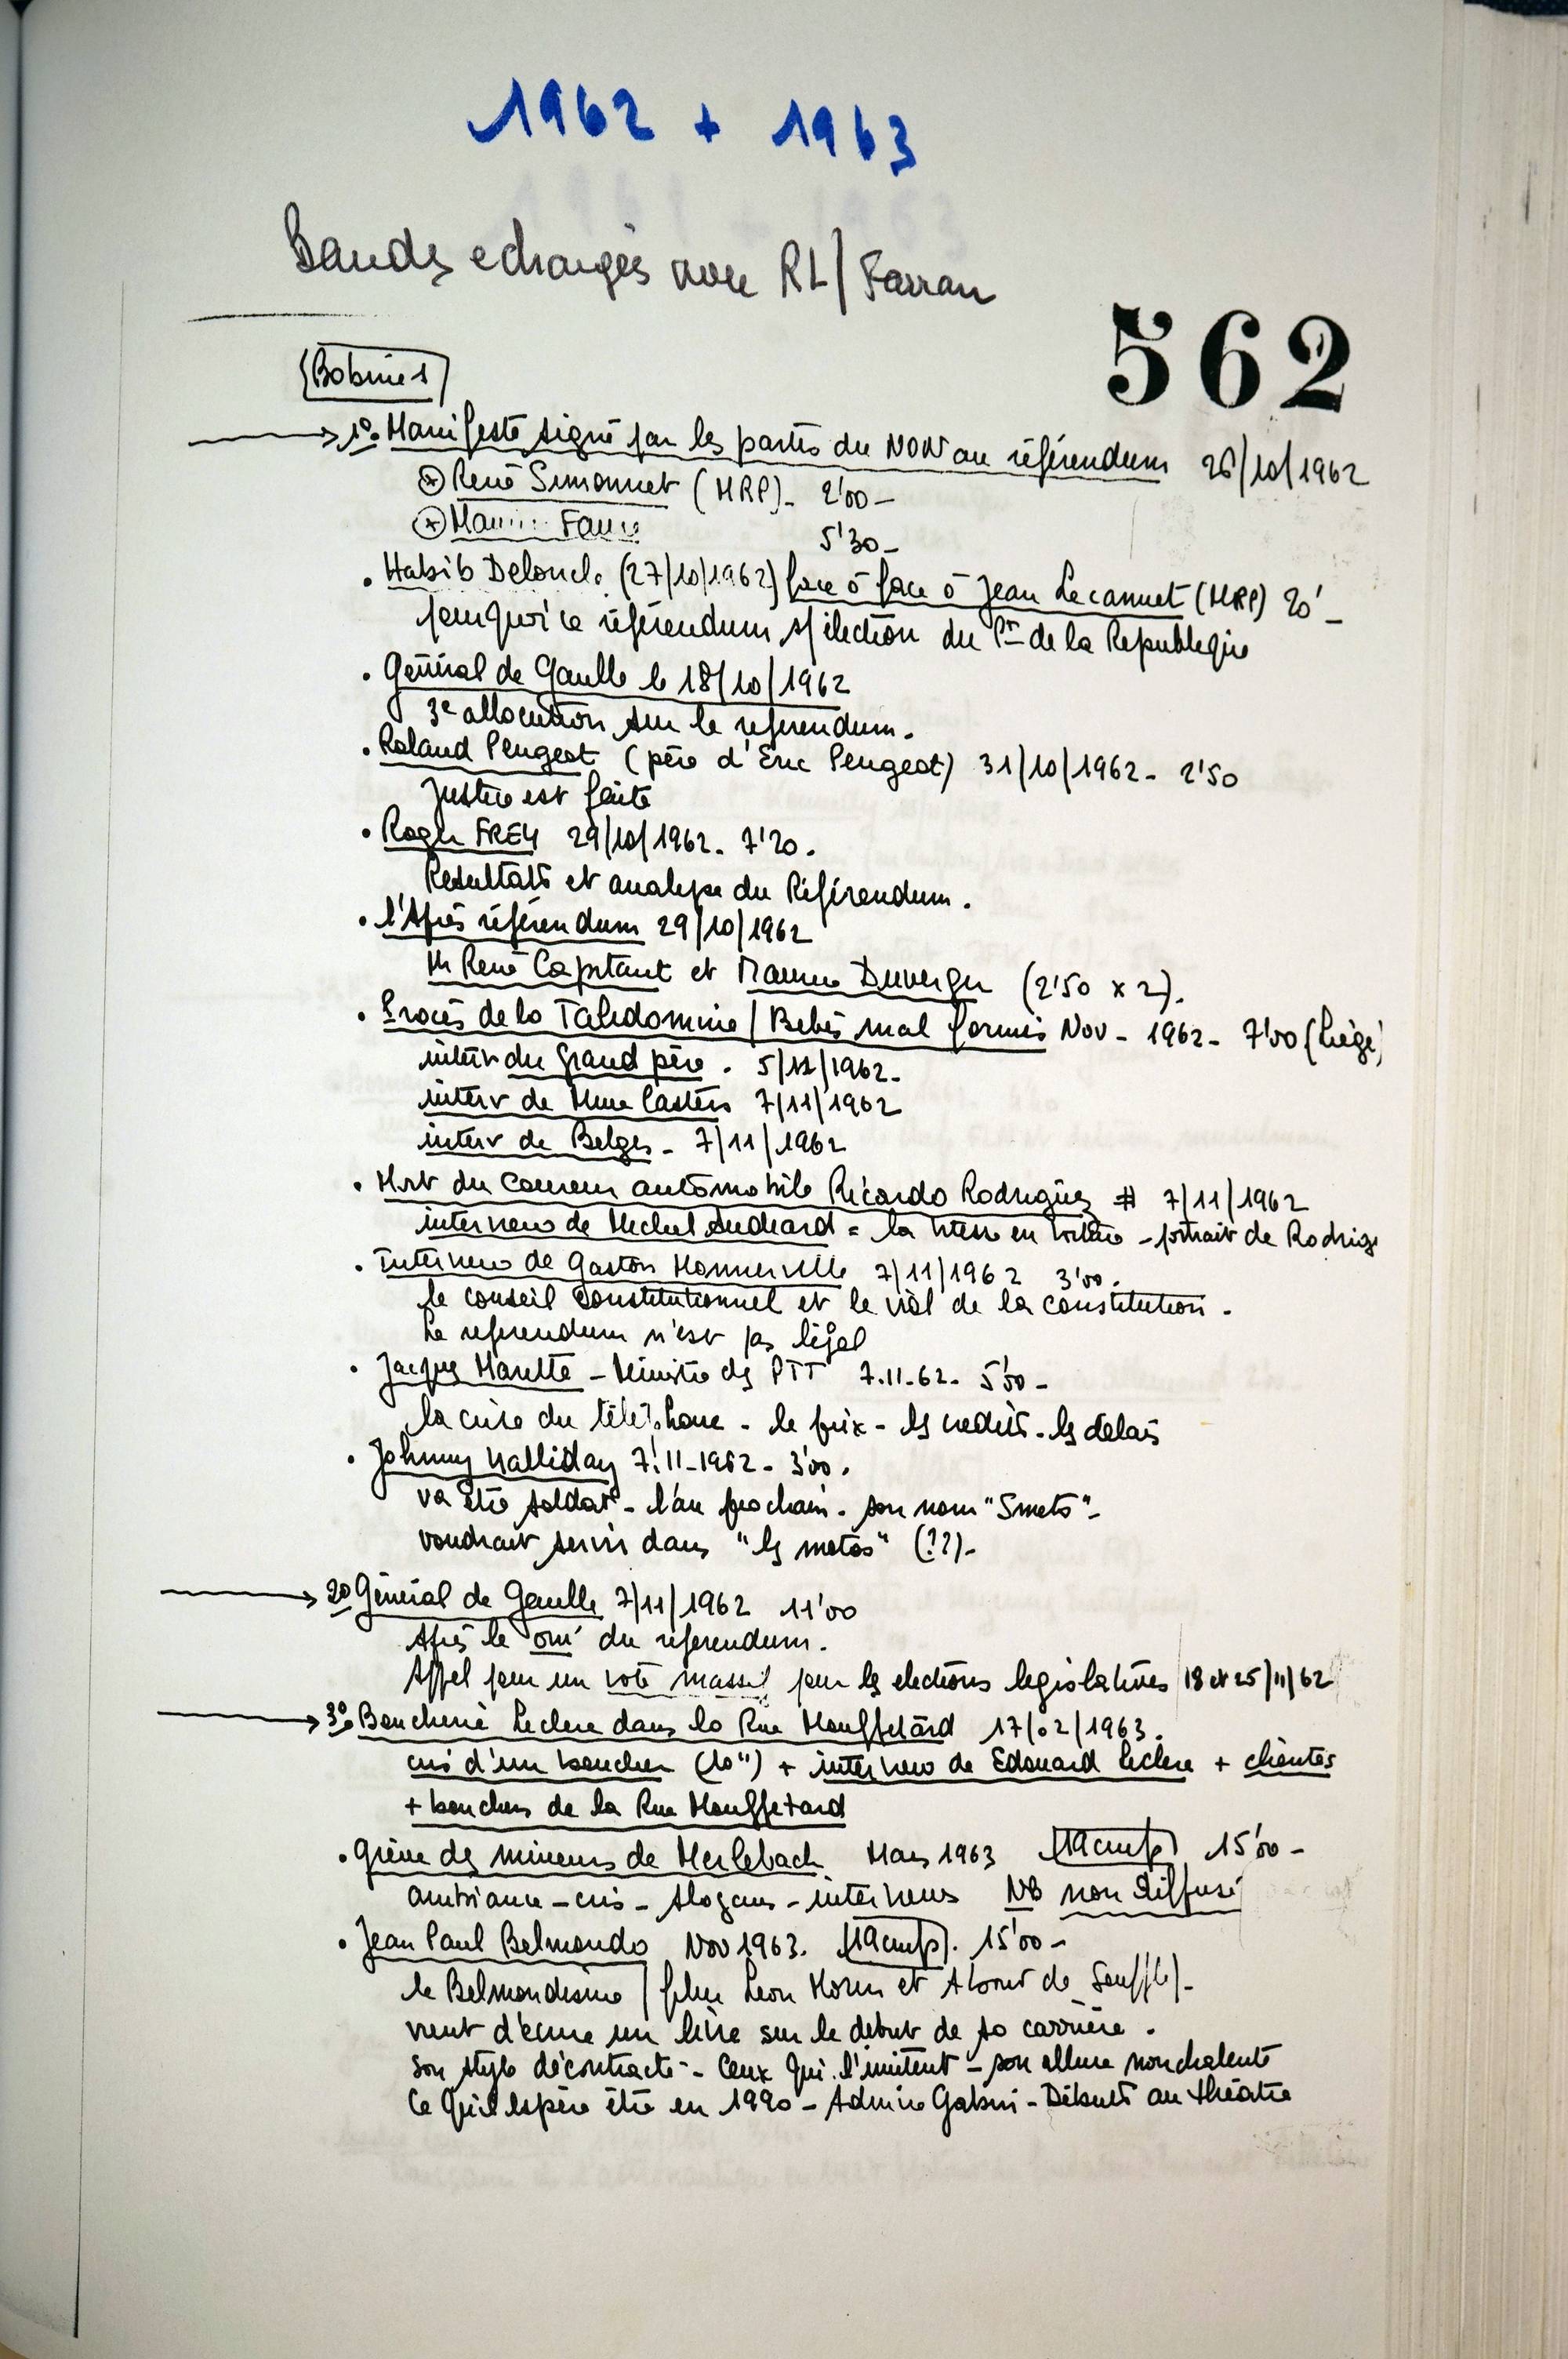 1962 + 1963
Bandes echangés avec RL/Farran
562
Bobine 1
1°. Manifeste signé par les partis du NON au référendum 26/10/1962
René Simonnet (MRP)- 2'00-
Faure 5'30-
• Habib Deloncle (27/10/1962) face à face à Jean Lecanuet (MRP) 20'-
pourquoi ce référendum s/ élection du Pt de la Republique
• Général de Gaulle le 18/10/1962
3e allocution sur le referendum.
• Roland Peugeot (père d'Eric Peugeot) 31/10/1962- 2'50
Justice est faite
• Roger FREY 29/10/1962. 7'20.
Resultats et analyse du Référendum.
• l'Après référendum 29/10/1962
M René Capitant et Maurice Duverger (2'50 x 2).
• Procès de la Talidomine / Bebés mal formés Nov - 1962- 7'00 (Liège)
interv du Grand père. 5/11/1962-
interv de Mme Casters 7/11/1962
interv de Belges- 7/11/1962
• Mort du Coureur automobile Ricardo Rodriguez # 7/11/1962
interview de Michel = la vitesse en voiture - portrait de Rodrig
• Interview de Gaston Monnerville 7/11/1962 3'00.
le conseil constitutionnel et le viol de la constitution.
Le referendum n'est pas légal
• Jacques Marette - Ministre des PTT 7.11-62- 5'50-
la crise du téléphone - le prix - les credits - les délais
• Johnny Halliday 7.11-1962- 3'00.
va être soldat - l'an prochain - son nom "Smets"-
voudrait servir dans "les motos" (??)-
2° Général de Gaulle 7/11/1962 11'00
Après le oui du referendum.
Appel pour un vote massif pour les elections legislatives 18 et 25/11/62
3°. Boucherie Leclerc dans la Rue Mouffetard 17/02/1963.
cris d'un boucher (10") + interview de Edouard Leclerc + clientes
+ bouchers de la Rue Mouffetard
• Grève des mineurs de Merlebach Mars 1963 19cm/s 15'00-
ambiance - cris - slogans - interviews NB non diffusé
• Jean Paul Belmondo Nov 1963. 19cm/s. 15'00-
le Belmondisme / film Leon Morin et A bout de Souffle/-
vient d'ecrire un livre sur le debut de sa carrière.
Son style décontracté - Ceux qui l'imitent - son allure nonchalente
Ce qu'il espère être en 1990 - Admire Gabin - Débuts au théatre